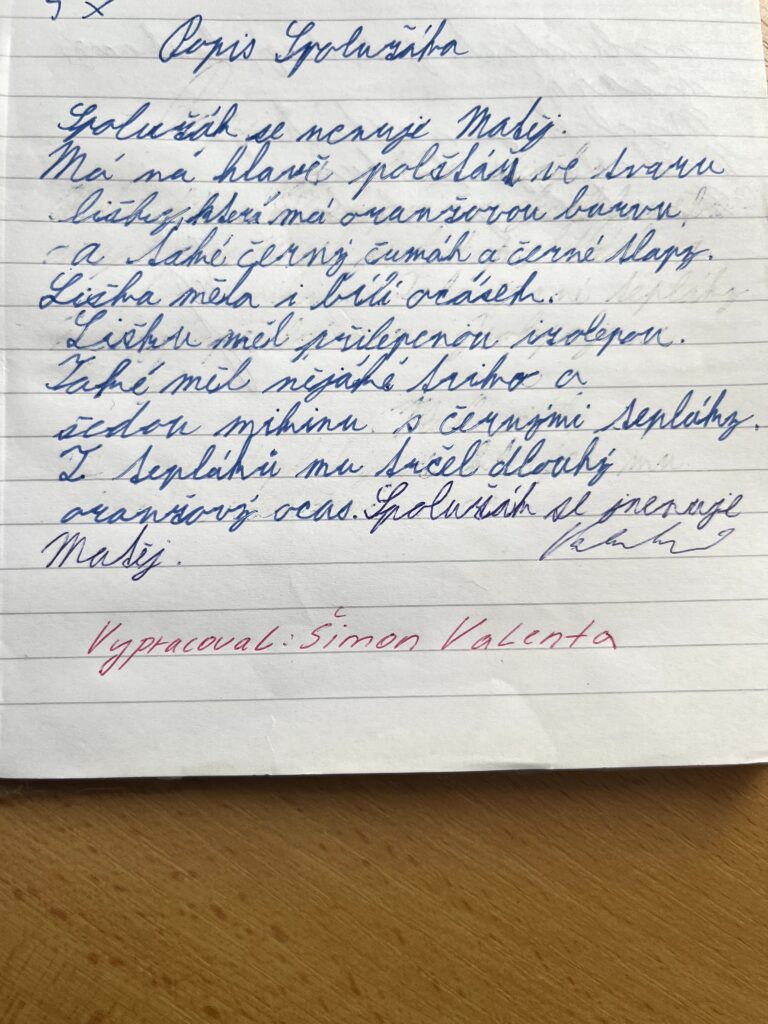 Popis Spolužáka
Spolužák se nenuje Matěj.
Má ná hlavě polštář ve tvaru
lišky, která má oranžovou barvu
a také černý čumák a černé tlapy.
Liška měla i bílí ocásek.
Lišku měl přilepenou izolepou.
Také měl nějáké triko a
šedou mikinu s černými tepláky.
Z tepláků mu trčel dlouhý
oranžový ocas. Spolužák se jmenuje
Matěj.
Vypracoval: Šimon Valenta